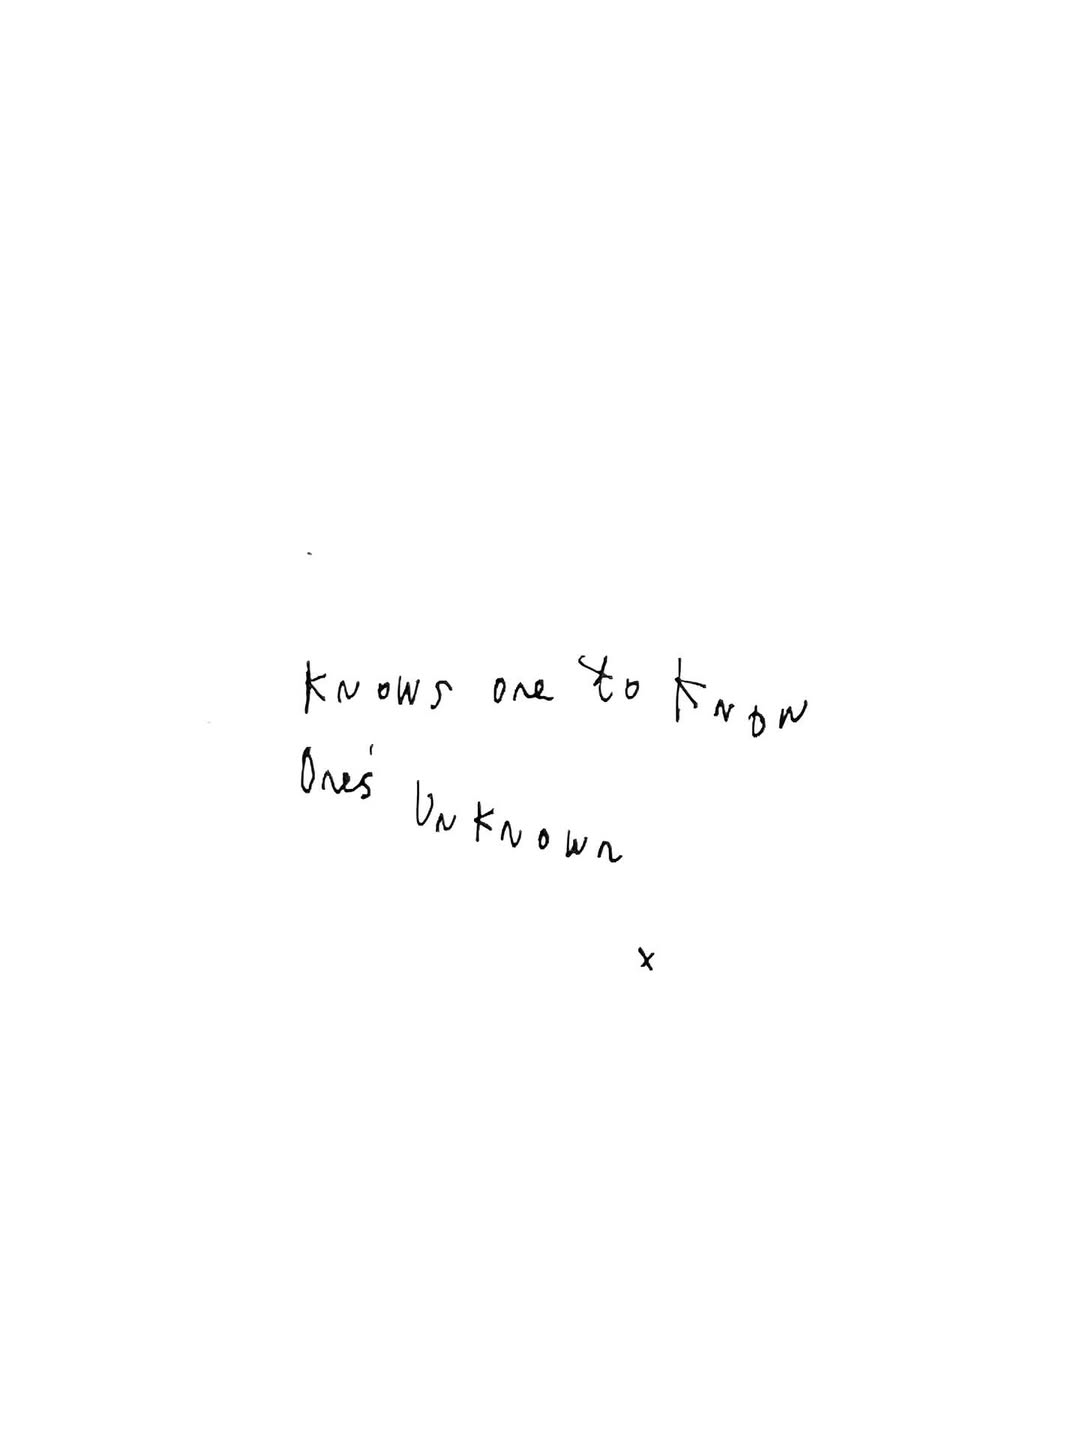 Knows one to Know
One's Unknown
x